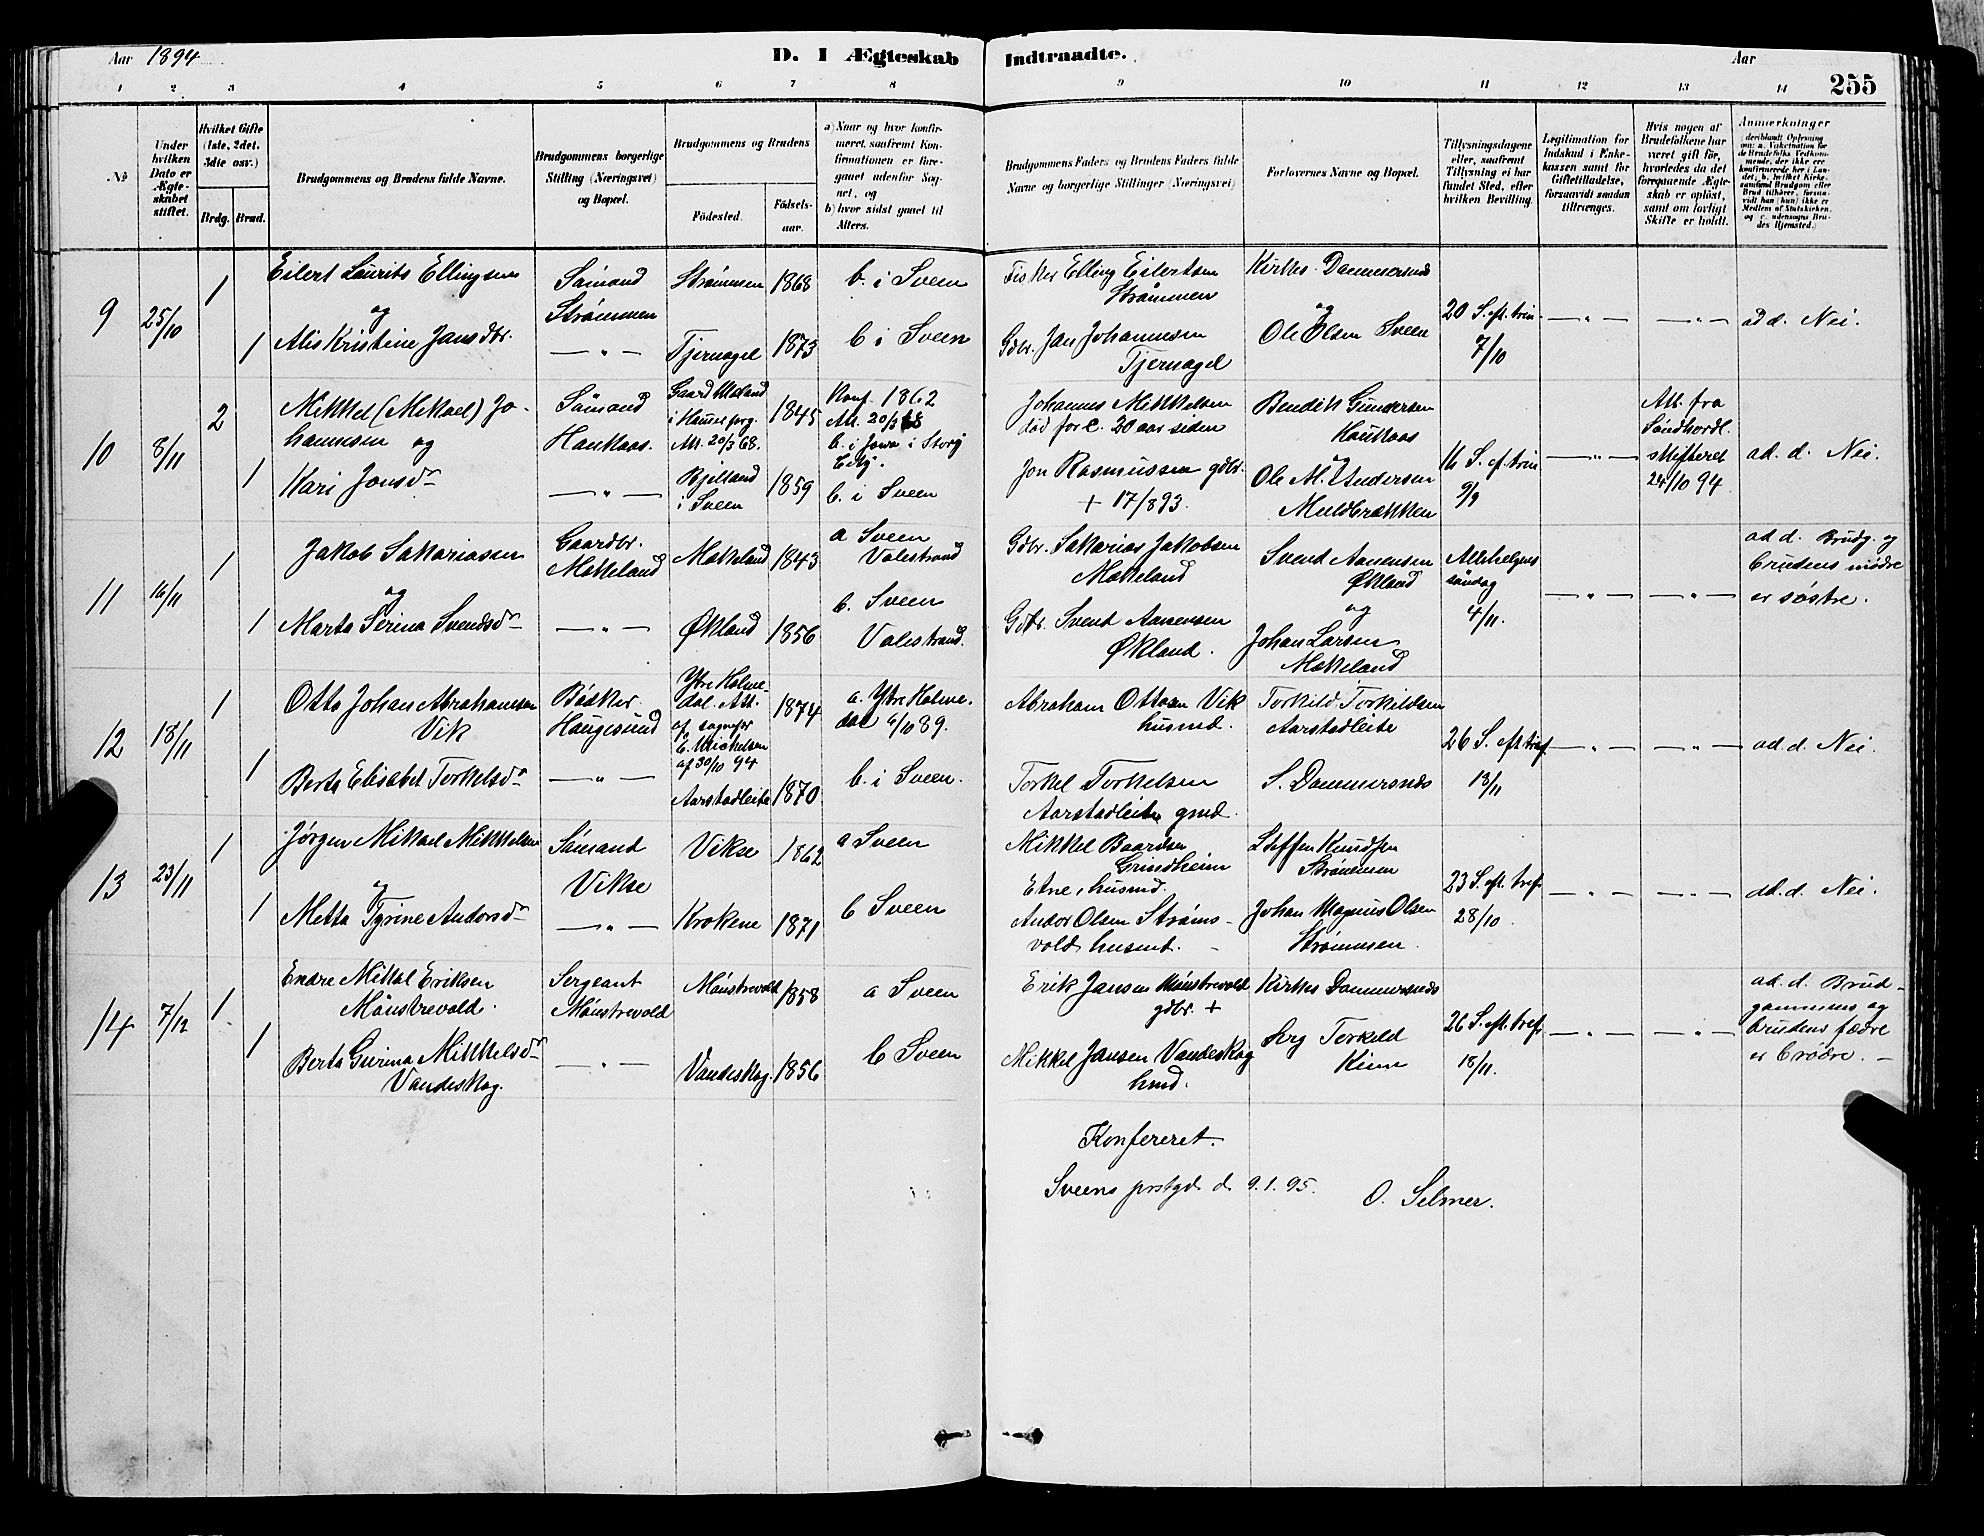 Aar 1894
D. I Ægteskab Indtraadte.
Aar
255
1 2 3 4 5 6 7 8 9 10 11 12 13 14
No
Under hvilken Dato er Ægteskabet stiftet.
Hvilket Gifte (1ste, 2det, 3die osv.)
Brdg. Brud.
Brudgommens og Brudens fulde Navne.
Brudgommens borgerlige Stilling (Næringsvei) og Bopæl.
Brudgommens og Brudens
Födested.
Födsels-aar.
a) Naar og hvor konfirmeret, saafremt Konfirmationen er foregaaet udenfor Sognet, og
b) hvor sidst gaaet til Alters.
Brudgommens Faders og Brudens Faders fulde Navne og borgerlige Stillinger (Næringsvei)
Forlovernes Navne og Bopæl.
Tillysningsdagene eller, saafremt Tillysning ei har fundet Sted, efter hvilken Bevilling.
Legitimation for Indskud i Enkekassen samt for Giftetilladelse, forsaavidt saadan tiltrænges.
Hvis nogen af Brudefolkene har været gift før, hvorledes da det foregaaende Ægteskab er oplöst, samt om lovligt Skifte er holdt.
Anmærkninger
9
25/10
1
Eilert Laurits Ellingsen
og
1
Alis Kristine Jansdtr.
Sømand
Strømmen
— " —
Strømmen 1868
Tjernagel 1873
b. i Sveen
b i Sveen
Fisker Elling Eilertsen
Strømmen
Gdbr. Jan Johannesen
Tjernagel
Kirkes. Dommersnes
og
Ole Olsen Sveen
20 S. eft. trin.
7/10
— " —
— " —
ad d. Nei.
10
8/11
2
Mikkel (Mikael) Jo-
hannesen og
1
Kari Jonsdr
Sømand
Haukaas.
— " —
Gaard Moland
Att. 20/3 68.
1845
Bjelland
i Sveen
1859
Konf. 1862
Att. 20/3 68
b. i Sveen
Johannes Mikkelsen
død for c. 20 aar siden
Jon Rasmussen gdbr.
+ 17/8 93.
Bendik Gundersen
Haukaas
Ole M. Andersen
16 S. ef. trin
9/9
— " —
Att. fra
Søndhordl.
skifteret
24/10 94
ad. d. Nei.
11
16/11
1
Jakob Sakariassen
og
1
Marta Serina Svendsdr
Gaardbr.
Mækeland
— " —
Mækeland 1843
Økland 1856
a Sveen
Valestrand
b. Sveen
Valestrand.
Gdbr. Sakarias Jakobsen
Mækeland
Gdbr. Svend Aanensen
Økland.
Svend Aanensen
Økland
og
Johan Larsen
Mækeland
Allehelgens
søndag
4/11.
— " —
— " —
ad d. Brudg. og
brudens mødre
er søstre.
12
18/11
1
Otto Johan Abrahamsen
Vik
1
Berta Elisabet Torkelsdr
Bødker
Haugesund
— " —
Ytre Holme-
dal. Att.
af sognepr
E. Michelsen
af 30/10 94
1874
Aarstadleite 1870
a. Ytre Holme.
dal 6/10 89.
b. i Sveen.
Abraham Ottosen Vik
husmd.
Torkel Torkelsen
Aarstadleite gmd.
Torkild Torkildsen
Aarstadleite
S. Dommersnes
26 S. eft. tref.
18/11
— " —
— " —
ad. d. Nei.
13
23/11
1
Jørgen Mikael Mikkelsen
og
1
Metta Tyrine Andorsdr
Sømand
Vikse
— " —
Vikse 1862
Krokene 1871
a Sveen
b Sveen
Mikkel Baardsen
Grindheim
Etne, husmd.
Andor Olsen Strøms-
vold, husmd.
Steffen Knudsen
Strømmen
Johan Magnus Olsen
Strømmen.
23 S. eft. tref.
28/10.
— " —
— " —
ad. d. Nei.
14
7/12
1
Endre Mikal Eriksen
Mønstrevold.
1
Berta Gurina Mikkelsdr
Vandeskog.
Sergeant
Mønstrevold
— " —
Mønstrevold 1858
Vandeskog. 1856
a Sveen
b Sveen
Erik Jansen Mønstrevold
gdbr. +
Mikkel Jansen Vandeskog
hmd.
Kirkes Dommersnes
Serg Torkild
Kinn
26 S. eft. tref.
18/11.
— " —
— " —
ad. d. Brud-
gommens og
brudens fædre
er brødre. —
Konfereret.
Sveens prstgd. d. 9.1.95. O. Selmer.